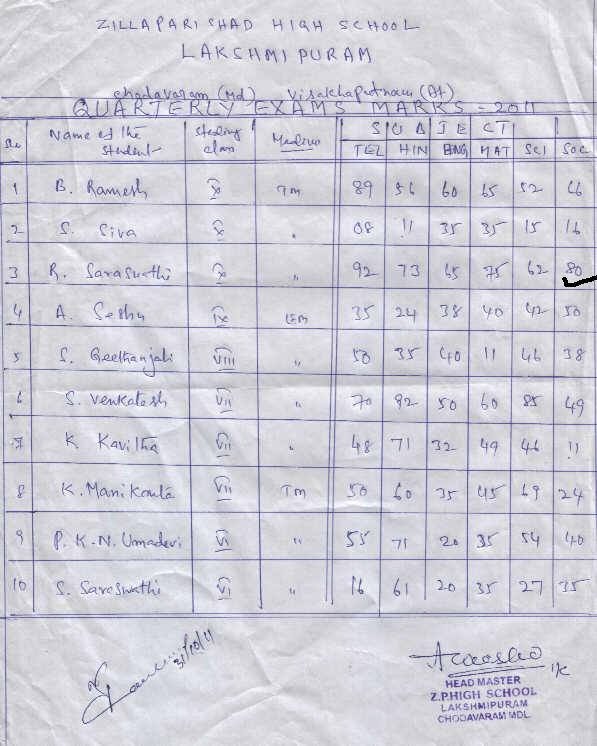 ZILLAPARISHAD HIGH SCHOOL
LAKSHMIPURAM
Chodavaram (Md) Visakhapatnam (Dt)
QUARTERLY EXAMS MARKS - 2011
Name of the Student Studing class Medium SUBJECT
TEL HIN ENG MAT SCI SOC
1 B. Ramesh X TM 89 56 60 65 52 66
2 S. Siva X " 08 11 35 35 15 16
3 R. Saraswathi X " 92 73 65 75 62 80
4 A. Seshu IX EM 35 24 38 40 42 50
5 S. Geethanjali VIII " 50 35 40 11 46 38
6 S. Venkatesh VII " 70 92 50 60 85 49
7 K Kavitha VII " 48 71 32 49 46 11
8 K. Manikanta VII TM 50 60 35 45 69 24
9 P. K. N. Umadevi VI " 55 71 20 35 54 40
10 S. Saraswathi VI " 16 61 20 35 27 35
31/10/11
I/c
HEAD MASTER
Z.P.HIGH SCHOOL
LAKSHMIPURAM
CHODAVARAM MDL.